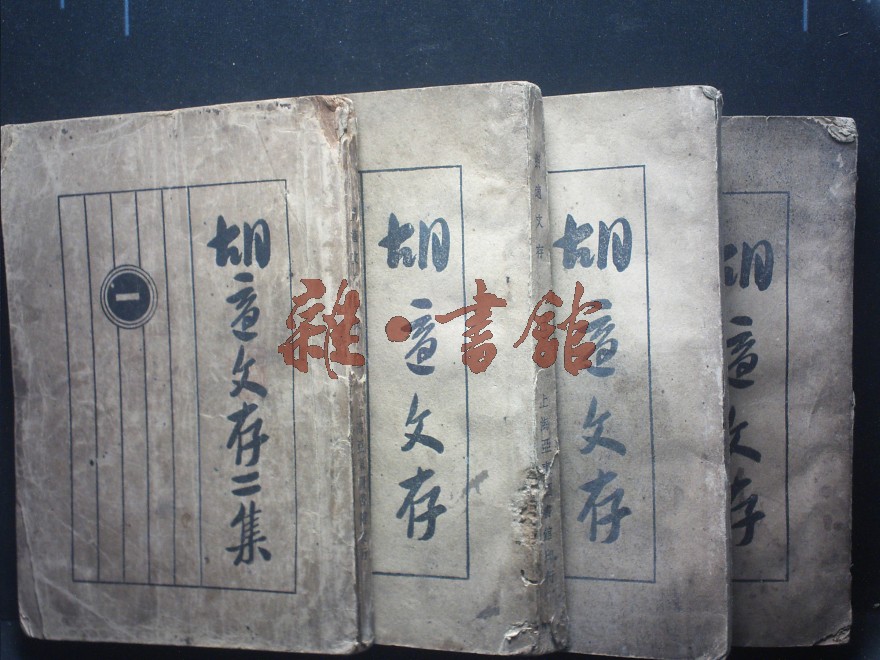 胡適文存二集
一
胡適文存
胡適文存
上海亞
印行
胡適文存
胡適文存
雜·書館